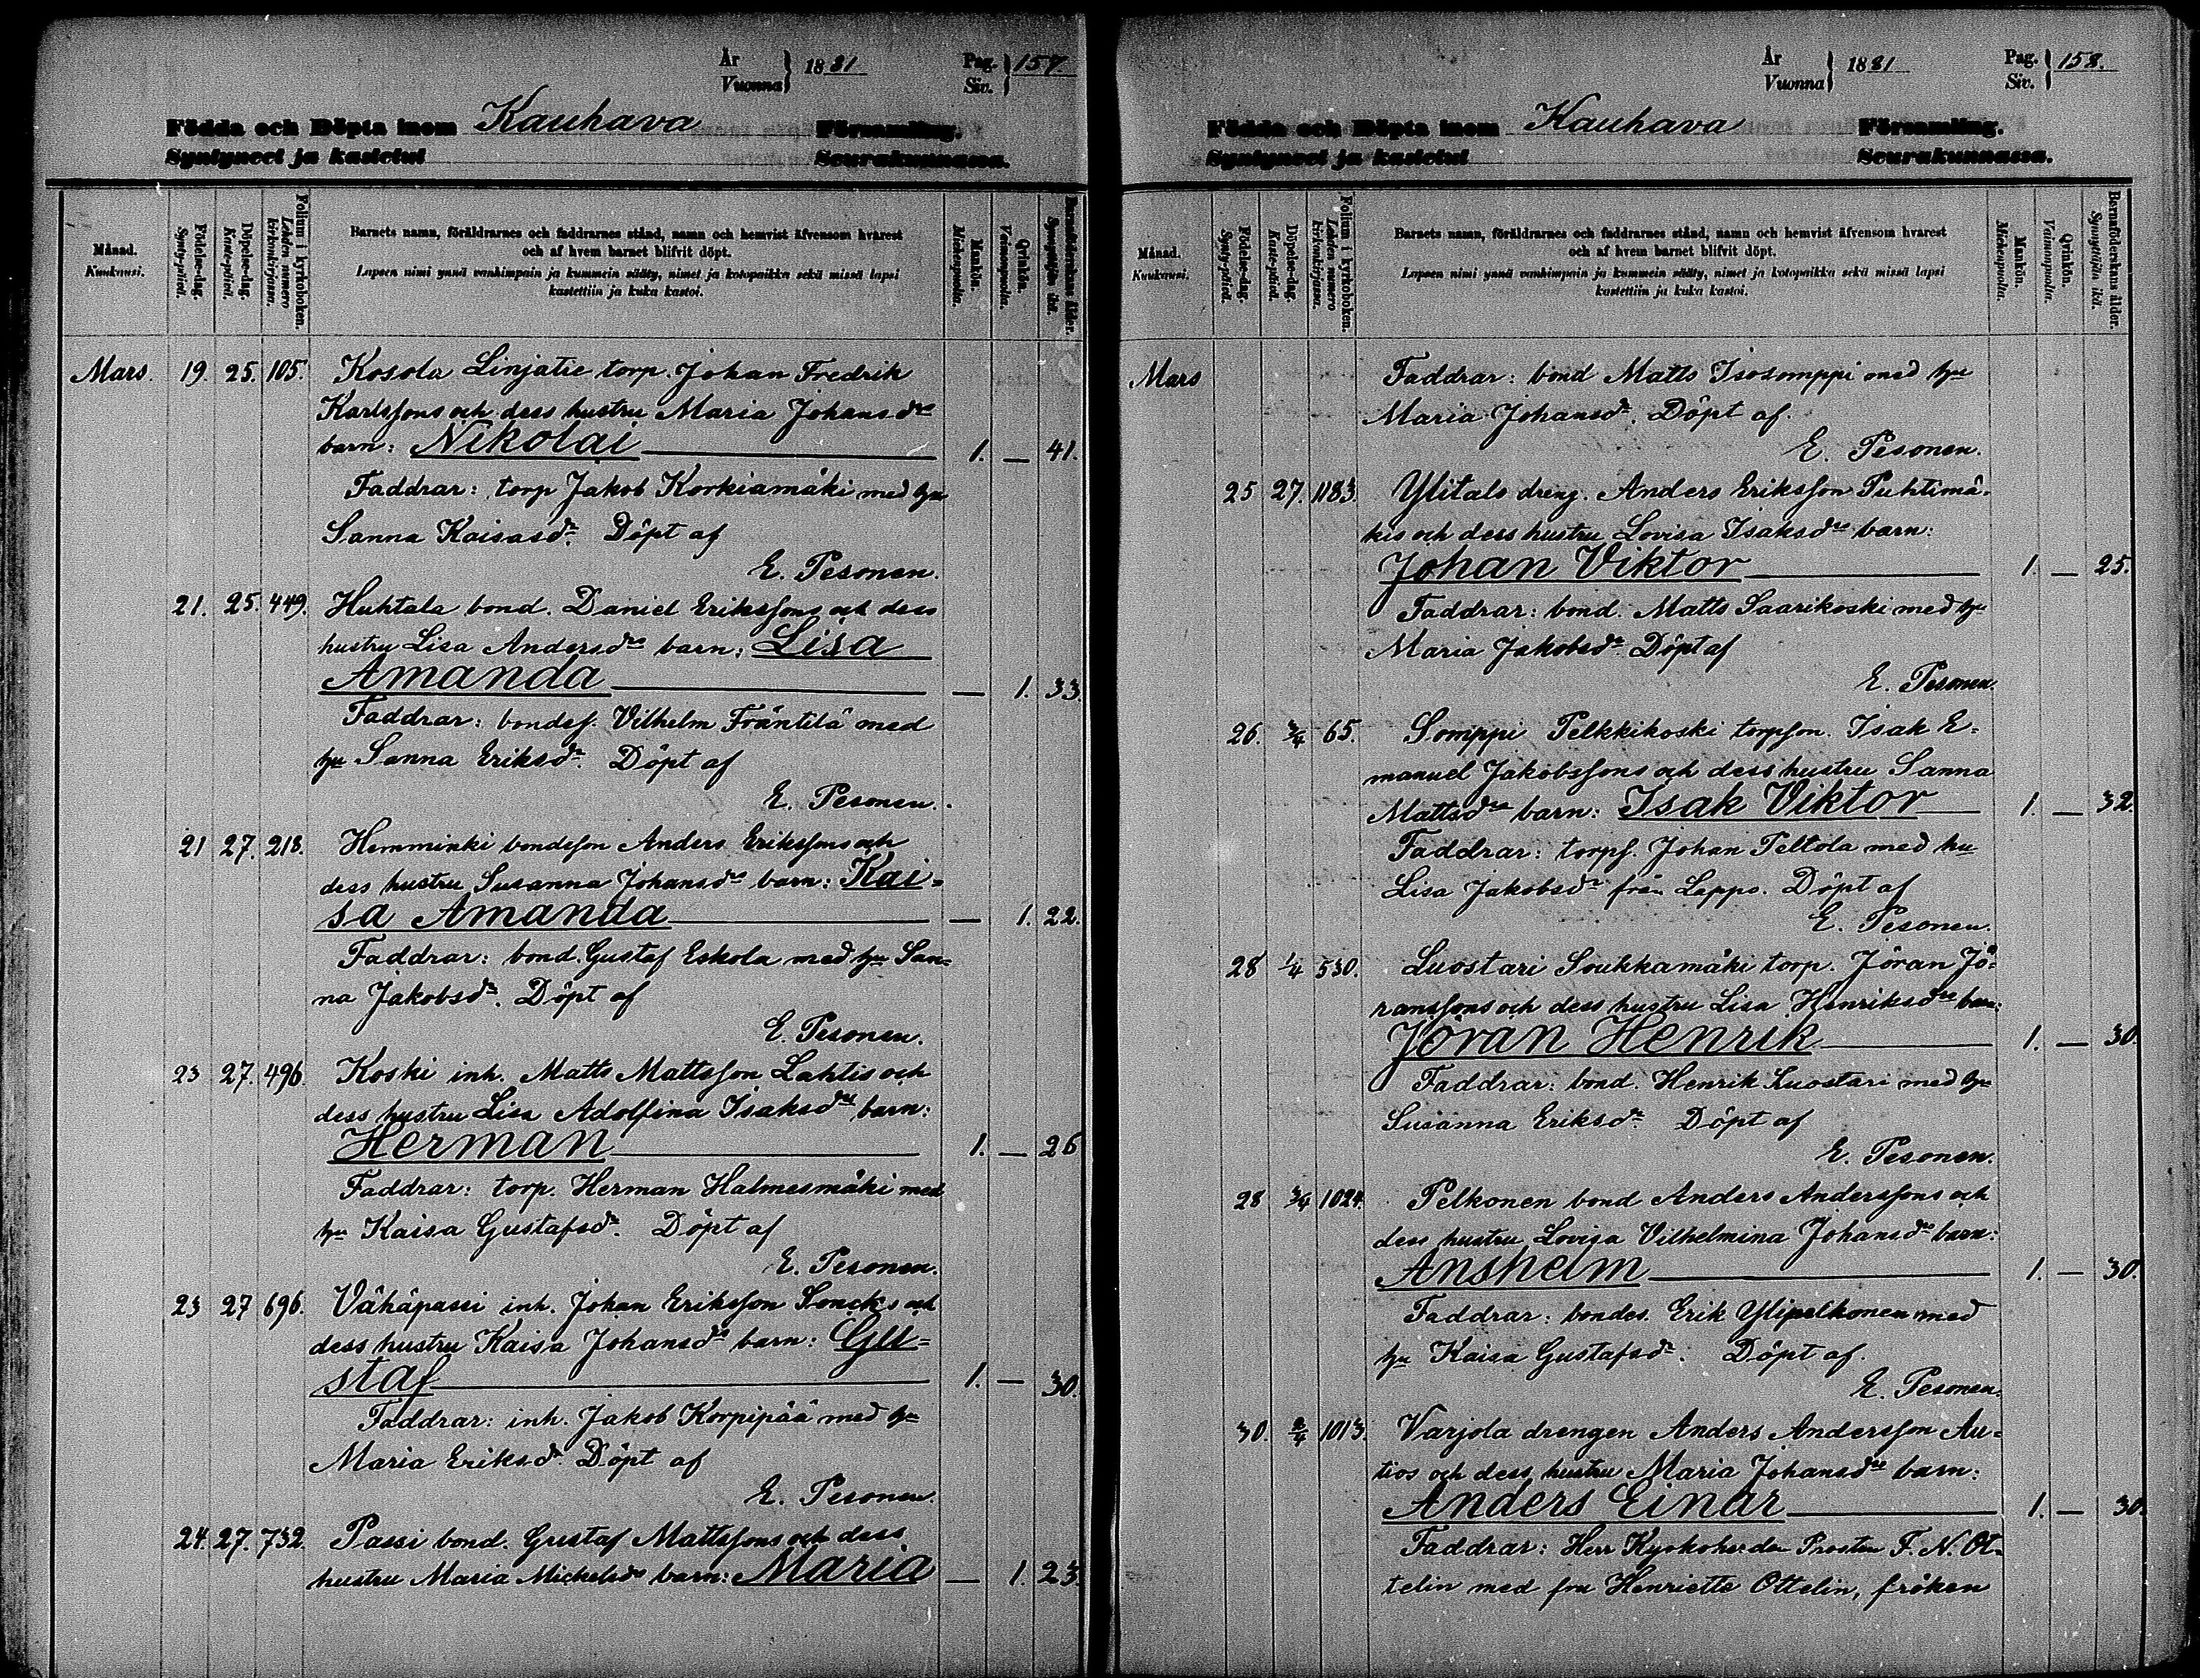 År
Vuonna } 1881 Pag.
Siv. } 157.
Födda och Döpta inom Kauhava Församling.
Syntyneet ja kastetut Seurakunnassa.
Månad.
Kuukausi.
Födelse-dag.
Synty-päivä.
Döpelse-dag.
Kaste-päivä.
Folium i kyrkoboken.
Lehden numero kirkonkirjassa.
Barnets namn, föräldrarnes och faddrarnes stånd, namn och hemvist äfvensom hvarest
och af hvem barnet blifvit döpt.
Lapsen nimi ynnä vanhimpain ja kummein sääty, nimet ja kotopaikka sekä missä lapsi
kastettiin ja kuka kastoi.
Mankön.
Miehenpuolta.
Qvinkön.
Vaimonpuolta.
Barnaföderskans ålder.
Synnyttäjän ikä.
Mars. 19. 25. 105. Kosola Linjatie torp. Johan Fredrik
Karlssons och dess hustru Maria Johansdrs
barn: Nikolai 1. — 41.
Faddrar: torp Jakob Korkiamäki med hu
Sanna Kaisasdr. Döpt af
E. Pesonen.
21. 25. 449. Huhtala bond. Daniel Erikssons och dess
hustru Lisa Andersdrs barn: Lisa
Amanda — 1. 33
Faddrar: bondes. Vilhelm Fräntilä med
hu Sanna Eriksdr. Döpt af
E. Pesonen.
21 27. 218. Hemminki bondeson Anders Erikssons och
dess hustru Susanna Johansdrs barn: Kai-
sa Amanda — 1. 22.
Faddrar: bond. Gustaf Eskola med hu San-
na Jakobsdr. Döpt af
E. Pesonen.
23 27. 496. Koski inh. Matts Mattsson Lahtis och
dess hustru Lisa Adolfina Isaksdrs barn:
Herman 1. — 26
Faddrar: torp. Herman Halmesmäki med
hu Kaisa Gustafsdr. Döpt af
E. Pesonen.
23 27 696. Vähäpassi inh. Johan Eriksson Soncks och
dess hustru Kaisa Johansdrs barn: Gu-
staf 1. — 30.
Faddrar: inh. Jakob Korpipää med hu
Maria Eriksdr. Döpt af
E. Pesonen.
24. 27. 732. Passi bond. Gustaf Mattssons och dess
hustru Maria Michelsdrs barn: Maria — 1. 23.
År
Vuonna } 1881 Pag.
Siv. } 158.
Födda och Döpta inom Kauhava Församling.
Syntyneet ja kastetut Seurakunnassa.
Månad.
Kuukausi.
Födelse-dag.
Synty-päivä.
Döpelse-dag.
Kaste-päivä.
Folium i kyrkoboken.
Lehden numero kirkonkirjassa.
Barnets namn, föräldrarnes och faddrarnes stånd, namn och hemvist äfvensom hvarest
och af hvem barnet blifvit döpt.
Lapsen nimi ynnä vanhimpain ja kummein sääty, nimet ja kotopaikka sekä missä lapsi
kastettiin ja kuka kastoi.
Mankön.
Miehenpuolta.
Qvinkön.
Vaimonpuolta.
Barnaföderskans ålder.
Synnyttäjän ikä.
Mars Faddrar: bond Matts Isosomppi med hu
Maria Johansdr. Döpt af.
E. Pesonen.
25 27. 1183. Ylitalo dreng. Anders Eriksson Puhtimä-
kis och dess hustru Lovisa Isaksdrs barn:
Johan Viktor 1. — 25.
Faddrar: bond. Matts Saarikoski med hu
Maria Jakobsdr. Döpt af
E. Pesonen.
26. 3/4 65. Somppi Pelkkikoski torpson. Isak E-
manuel Jakobssons och dess hustru Sanna
Mattsdrs barn: Isak Viktor 1. — 32.
Faddrar: torps. Johan Peltola med hu
Lisa Jakobsdr från Lappo. Döpt af
E. Pesonen.
28 1/4 530. Luostari Soukkamäki torp. Jöran Jö-
ranssons och dess hustru Lisa Henriksdrs barn:
Jöran Henrik 1. — 30.
Faddrar: bond. Henrik Luostari med hu
Susanna Eriksdr. Döpt af
E. Pesonen.
28 3/4 1024. Pelkonen bond Anders Anderssons och
dess hustru Lovisa Vilhelmina Johansdrs barn:
Anshelm 1. — 30.
Faddrar: bondes. Erik Ylipelkonen med
hu Kaisa Gustafsdr. Döpt af.
E. Pesonen.
30. 2/4 1013. Varjola drengen Anders Andersson Au-
tios och dess hustru Maria Johansdrs barn:
Anders Einar 1. — 30.
Faddrar: Herr Kyrkoherden Prosten F. N. Ot-
telin med fru Henriette Ottelin, fröken